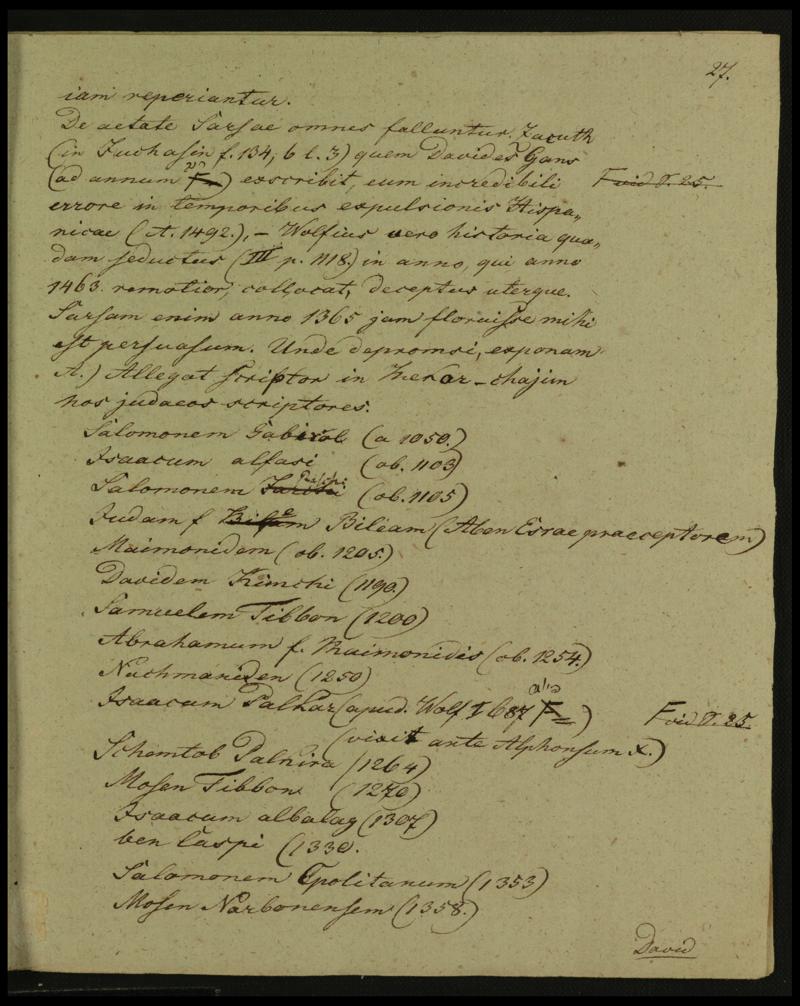 27.
iam reperiantur.
De aetate Sarsae omnes falluntur. Zacuth
(in Juchasin f. 134, b l. 3) quem Davides Gans
(ad annum F) exscribit, eum incredibili F vid S. 25.
errore in temporibus expulsionis Hispa„
nicae (A. 1492.), – Wolfius vero historia qua„
dam seductus (III p. 1118.) in anno, qui anno
1463. remotior, collocat, deceptus uterque.
Sarsam enim anno 1365 jam floruisse mihi
est persuasum. Unde depromsi, exponam
A.) Allegat scriptor in Mekor-chajim
hos judaeos scriptores.
Salomonem Gabirol (a 1050.)
Isaacum alfasi (ob. 1103)
Salomonem Jarchi Raschi (ob. 1105)
Judam f Bileam (Aben Esrae praeceptorem)
Maimonidem (ob. 1205.)
Davidem Kimchi (1190.)
Samuelem Tibbon (1200)
Abrahamum f. Maimonidis (ob. 1254.)
Nachmaniden (1250)
Isaacum Palkar (apud. Wolf I 687 F) F vid S. 25
(vixit ante Alphonsum X.)
Schemtob Palkira (1264)
Mosen Tibbon (1270)
Isaacum albalag (1307)
ben Caspi (1330.
Salomonem Epolitanum (1353)
Mosen Narbonensem (1358.)
David